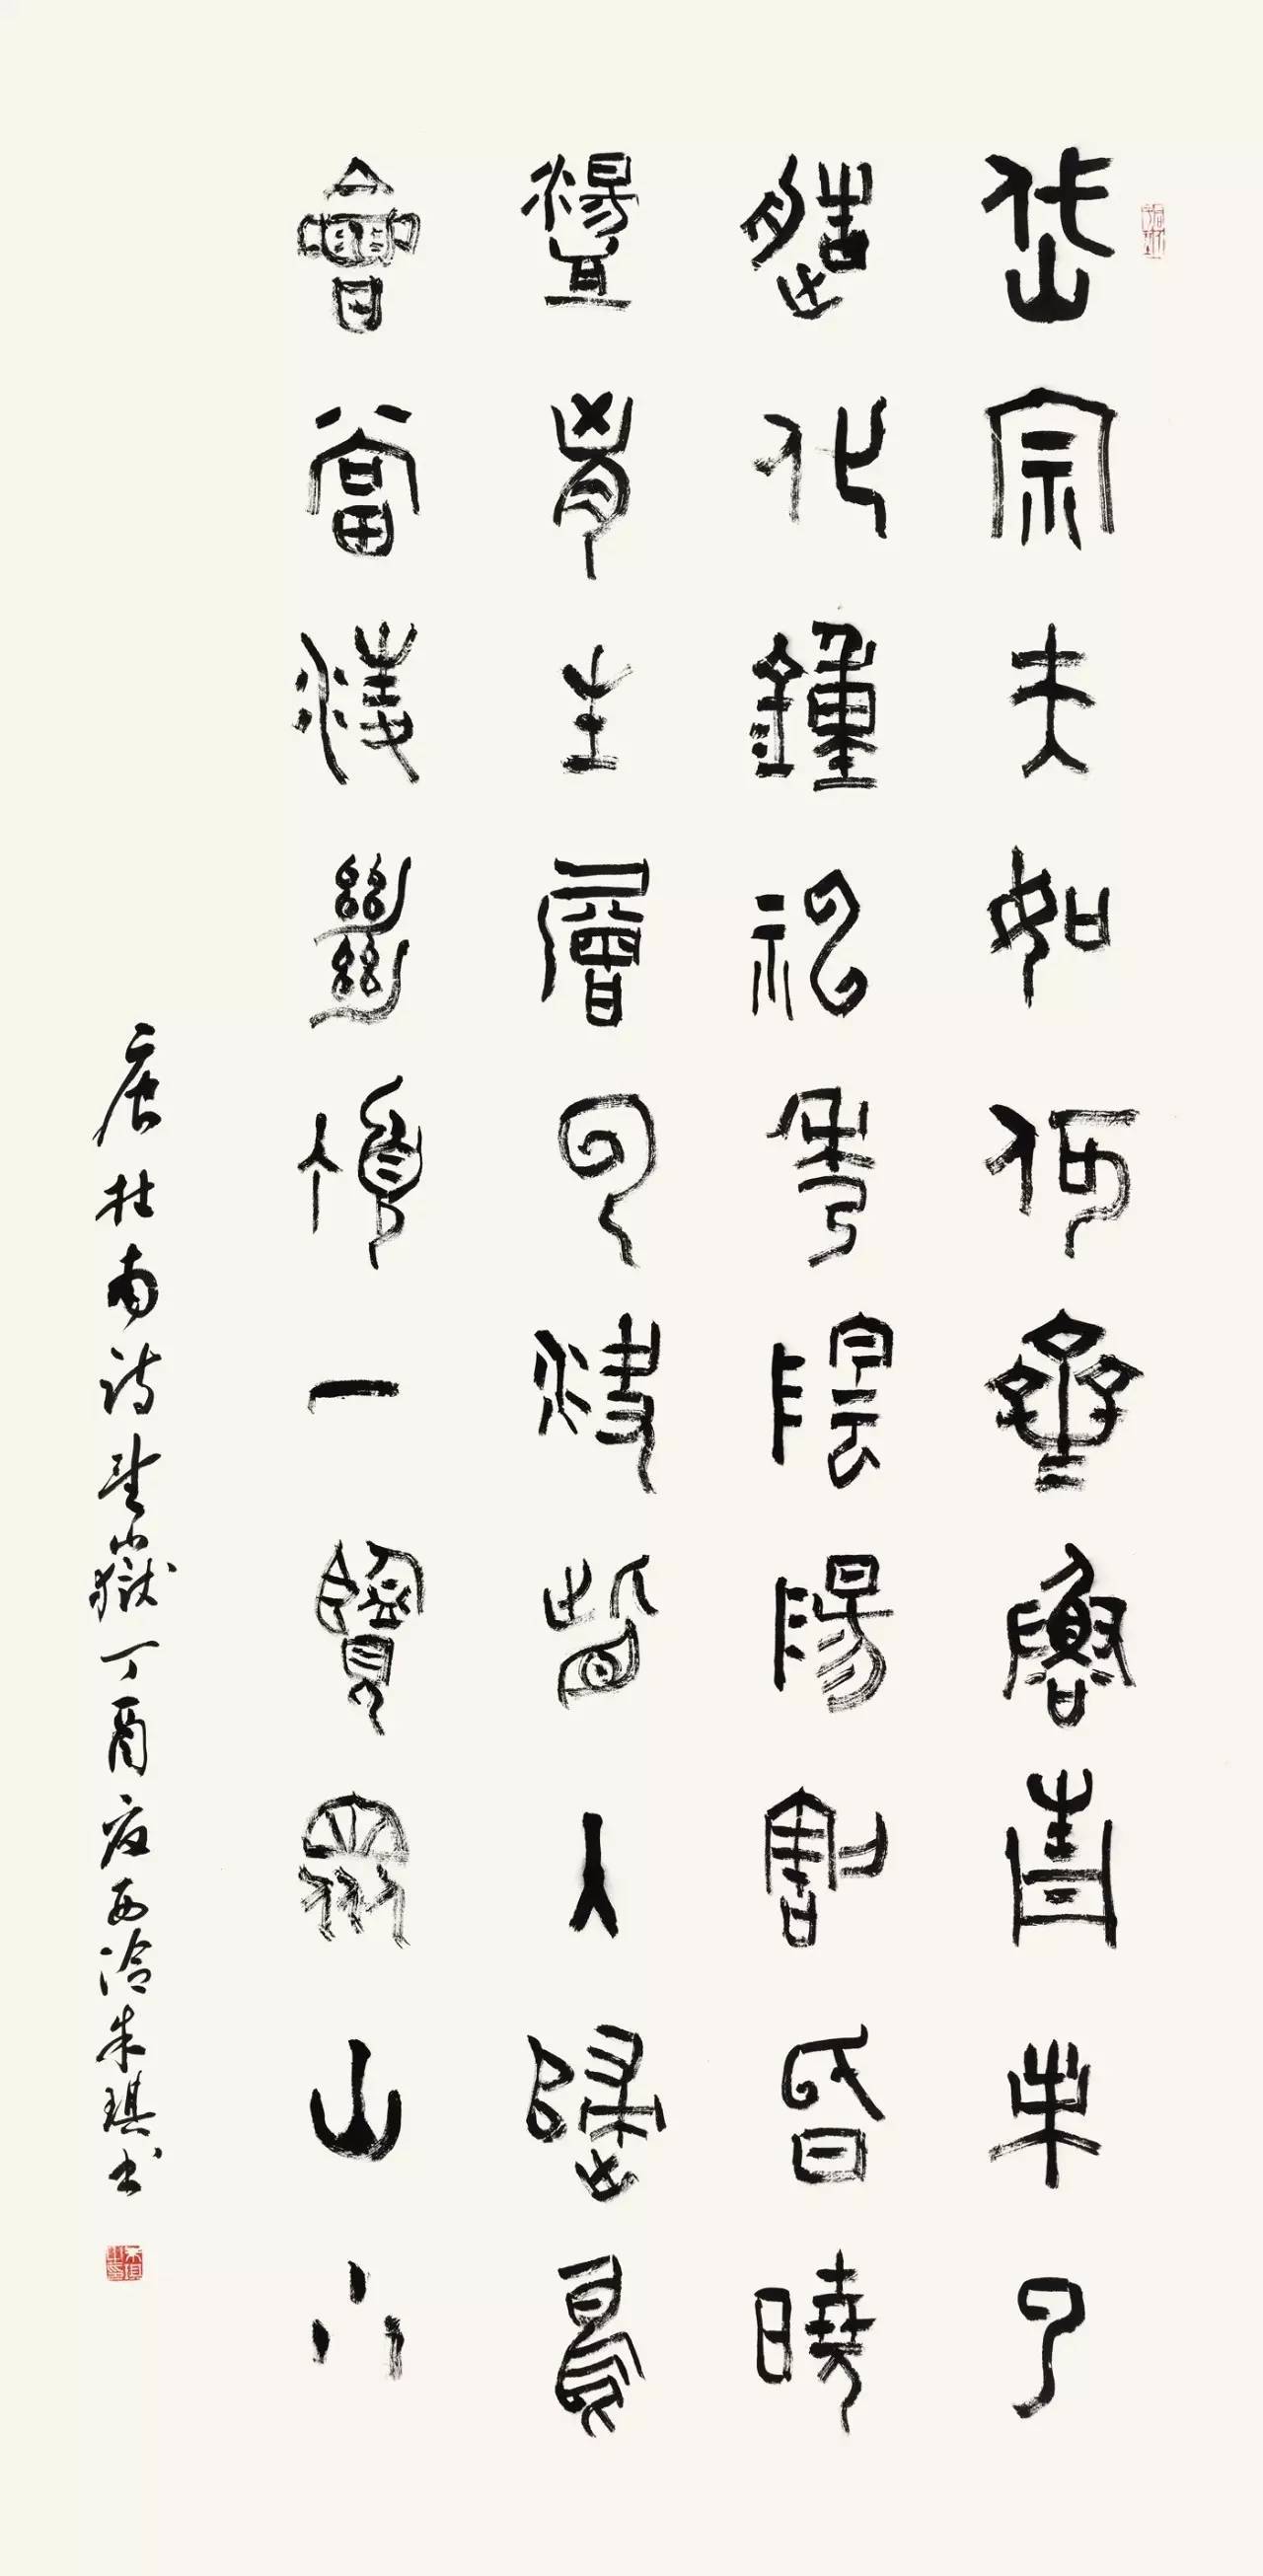 岱宗夫如何齊魯青未了
造化鍾神秀陰陽割昏曉
盪胸生層云決眥入歸鳥
會當淩絕頂一覽眾山小
唐杜甫詩望嶽丁酉夏西泠朱琪书